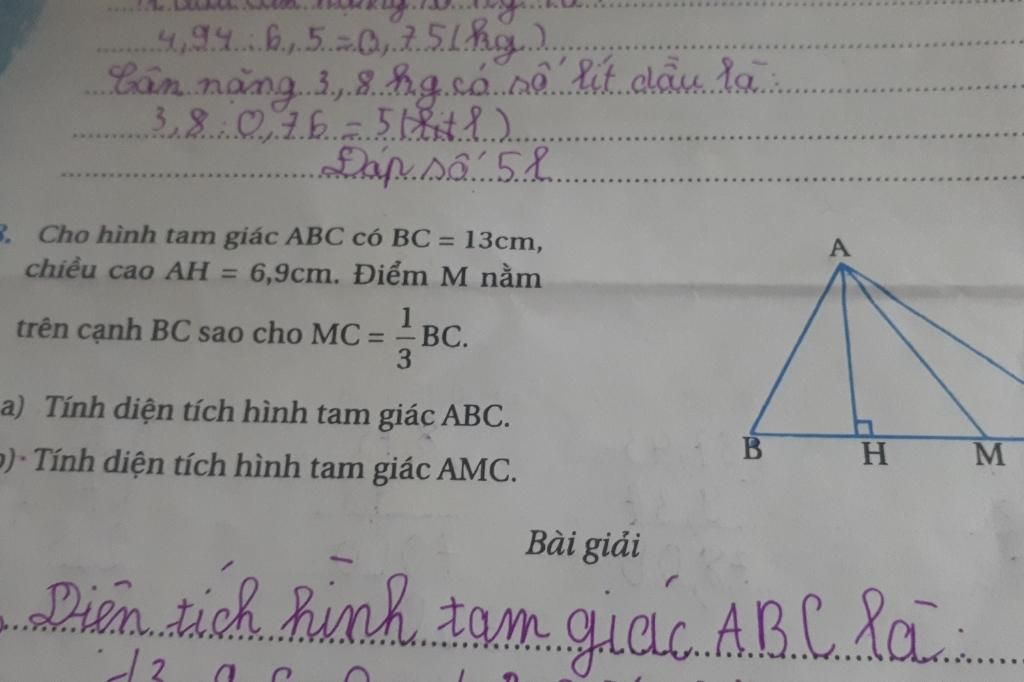 4,94 : 6,5 = 0,75 (kg)
Cân nặng 3,8 kg có số lít dầu là:
3,8 : 0,76 = 5 (l)
Đáp số 5 l
3. Cho hình tam giác ABC có BC = 13cm,
chiều cao AH = 6,9cm. Điểm M nằm
trên cạnh BC sao cho MC = 1/3 BC.
a) Tính diện tích hình tam giác ABC.
b) Tính diện tích hình tam giác AMC.
A
B H M
Bài giải
Diện tích hình tam giác ABC là: